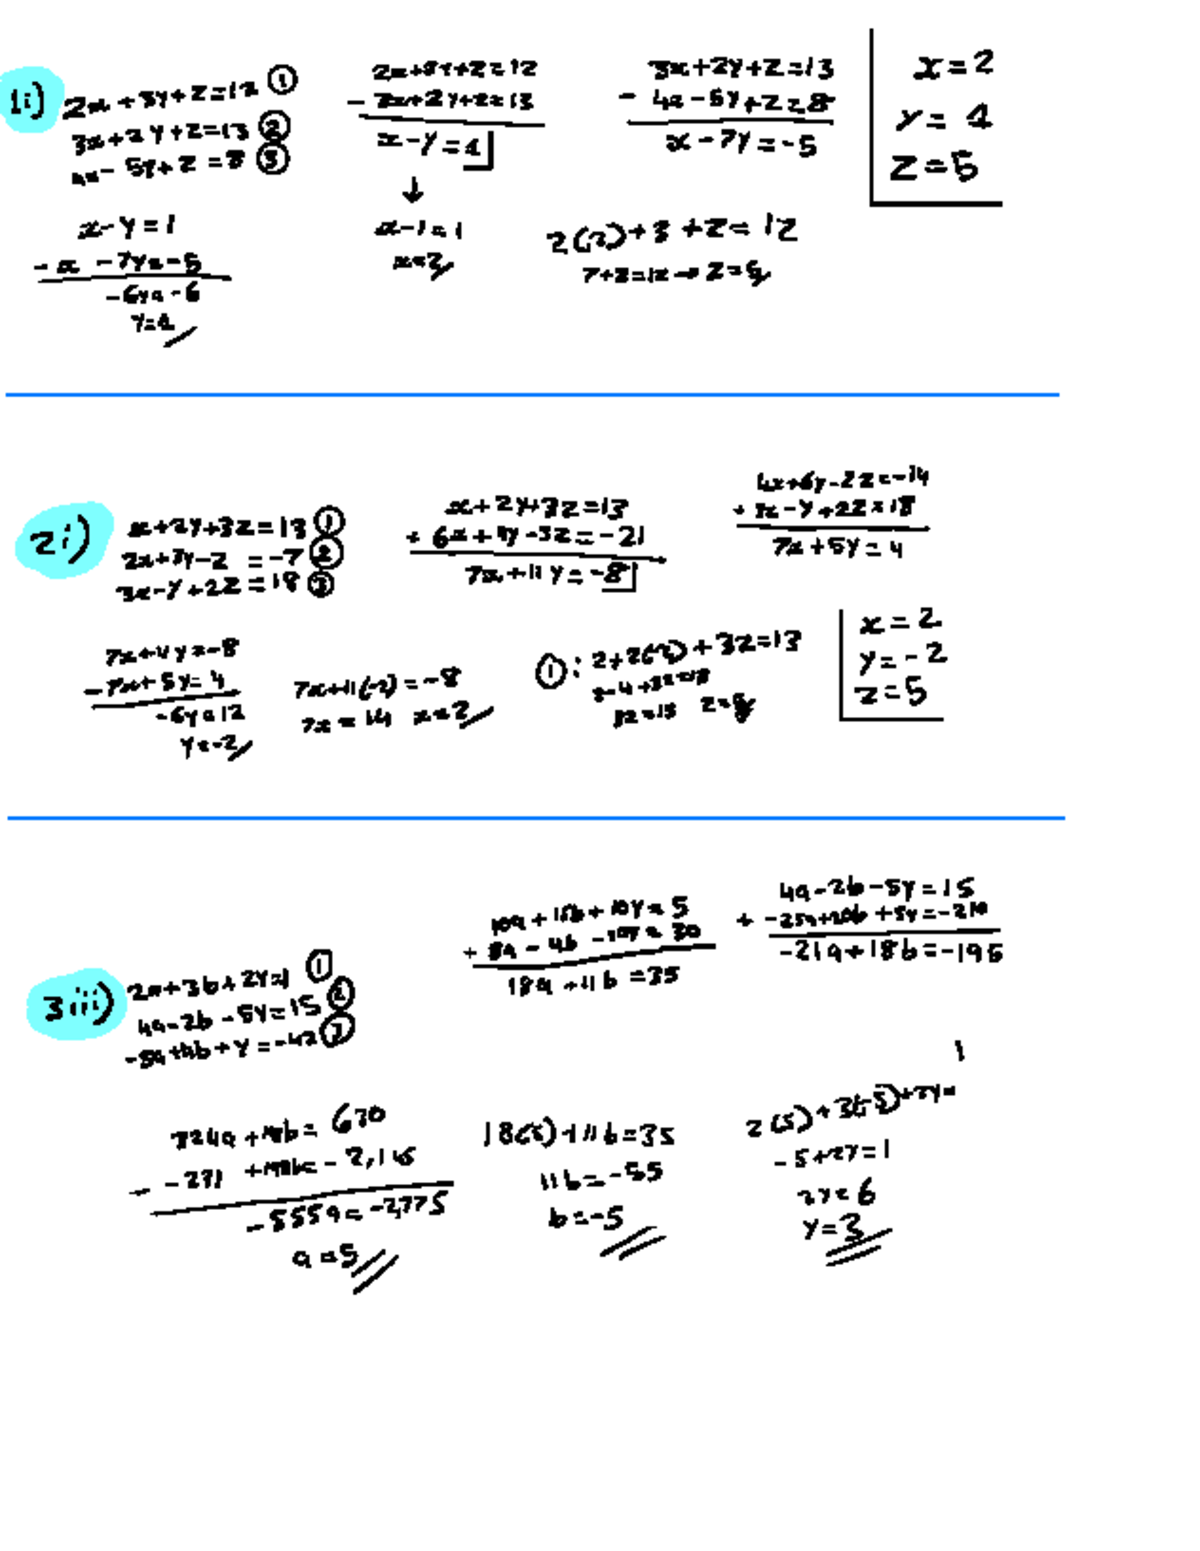 1i) 2x + 3y + z = 12 ①
3x + 2y + z = 13 ②
4x - 5y + z = 8 ③
2x + 3y + z = 12
- 3x + 2y + z = 13
x - y = 1
↓
x - 1 = 1
x = 2
3x + 2y + z = 13
- 4x - 5y + z = 8
x - 7y = -5
x = 2
y = 4
z = 5
x - y = 1
- x - 7y = -5
-6y = -6
y = 1
2(2) + 3 + z = 12
7 + z = 12 → z = 5
2i) x + 2y + 3z = 13 ①
2x + 3y - z = -7 ②
3x - y + 2z = 18 ③
x + 2y + 3z = 13
+ 6x + 9y - 3z = -21
7x + 11y = -8
4x + 6y - 2z = -14
+ 3x - y + 2z = 18
7x + 5y = 4
7x + 11y = -8
- 7x + 5y = 4
-6y = 12
y = -2
7x + 11(-2) = -8
7x = 14 x = 2
①: 2 + 2(-2) + 3z = 13
2 - 4 + 3z = 13
3z = 15 z = 5
x = 2
y = -2
z = 5
3iii) 2a + 3b + 2y = 1 ①
4a - 2b - 5y = 15 ②
-5a + 4b + y = -42 ③
10a + 15b + 10y = 5
+ 8a - 4b - 10y = 30
18a + 11b = 35
4a - 2b - 5y = 15
+ -25a + 20b + 5y = -210
-21a + 18b = -195
324a + 198b = 630
- -231 + 198b = -2,145
-555a = -2,775
a = 5
18(5) + 11b = 35
11b = -55
b = -5
2(5) + 3(-5) + 2y = 1
-5 + 2y = 1
2y = 6
y = 3